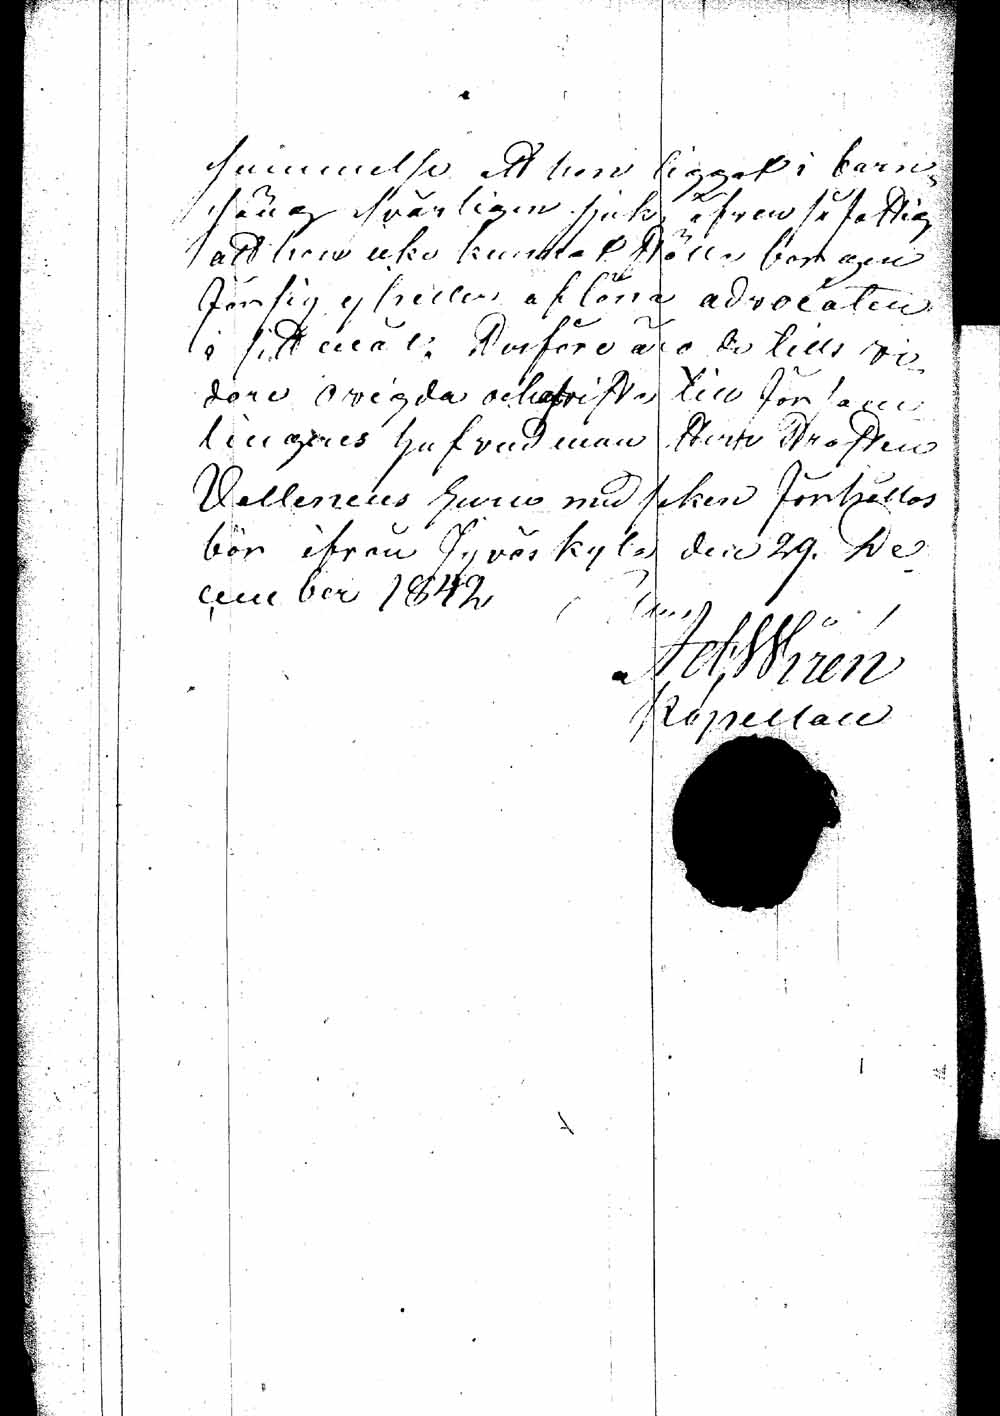 summelse att hon legget i barn
säng svårligen sjuk, äfven så fattig
att hon icke kunnat ställa borgen
för sig ej heller aflöna advocaten
i sitt mål. Derföre äro de tills vi
dare ovigda och till församm
lingens hufvudman Herr Prosten
Wallenius huru med saken förhållas
bör ifrån Jyväskylä den 29. De
cember 1842
Ad Wirén
Kapellan